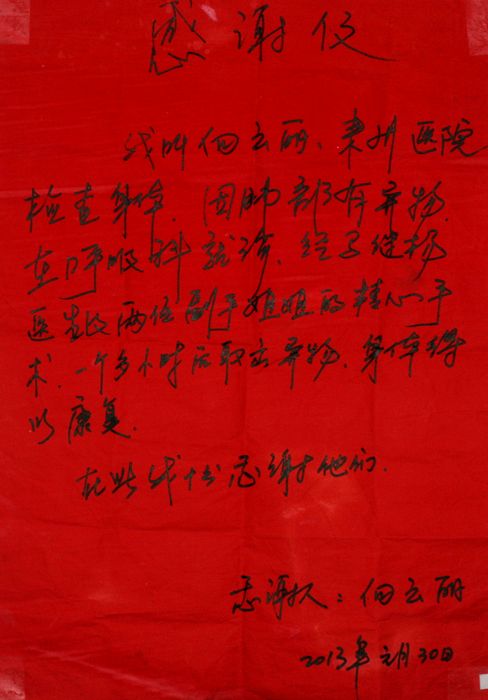 感谢信
我叫何云丽、来州医院
检查身体. 因肺部有异物,
在呼吸科就诊. 经子健杨
医生及两位副手姐姐的精心手
术. 一个多小时后取出异物. 身体得
以康复.
在此我十分感谢他们.
感谢人: 何云丽
2013年元月30日